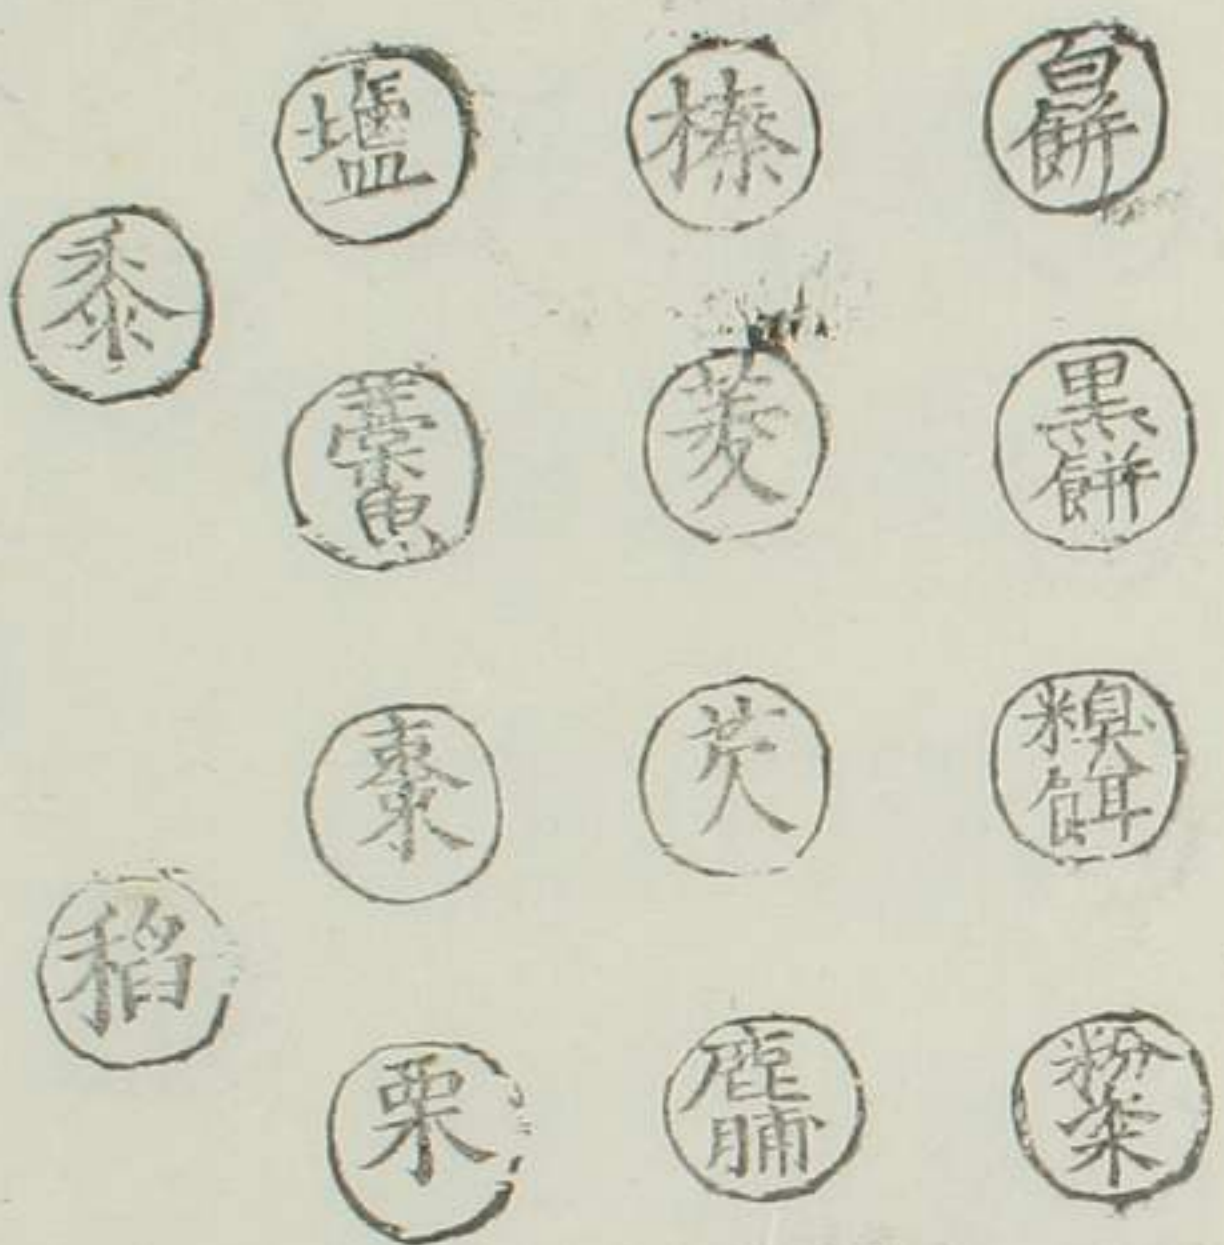 白餅
黒餅
糗餌
粉粢
榛
菱
芡
鹿脯
塩
藁魚
棗
栗
黍
稻